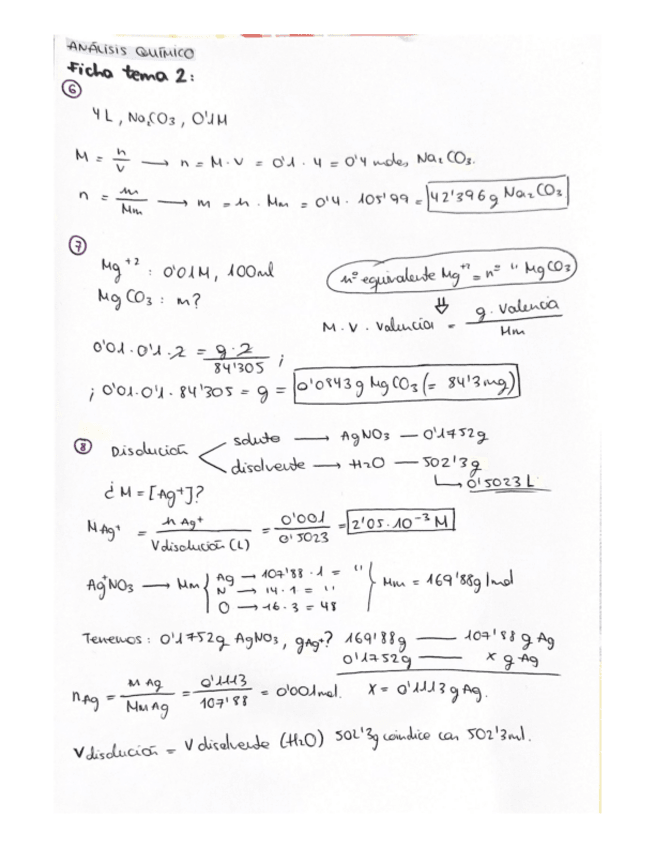 ANÁLISIS QUÍMICO
Ficha tema 2:
⑥
4L, Na₂CO3, 0'1M
M = n/V ⟶ n = M·V = 0'1 · 4 = 0'4 moles Na₂CO3.
n = m/Mm ⟶ m = n · Mm = 0'4 · 105'99 = 42'396g Na₂CO3
⑦
Mg⁺² : 0'01M, 100ml
nº equivalente Mg⁺² = nº " MgCO3
MgCO3 : m?
⇓
M · V · Valencia = g · Valencia / Mm
0'01 · 0'1 · 2 = g·2 / 84'305 ;
; 0'01 · 0'1 · 84'305 = g = 0'0843g MgCO3 (= 84'3mg)
⑧ Disolución
soluto ⟶ AgNO3 — 0'1752g
disolvente ⟶ H2O — 502'3g
↳ 0'5023 L
¿M = [Ag⁺]?
MAg⁺ = nAg⁺ / Vdisolución (L) = 0'001 / 0'5023 = 2'05·10⁻³ M
Ag⁺NO3 ⟶ Mm { Ag → 107'88 · 1 = "
N → 14 · 1 = "
O → 16 · 3 = 48 } Mm = 169'88g/mol
Tenemos: 0'1752g AgNO3, gAg⁺? 169'88g —— 107'88 g Ag
0'1752g —— x g Ag
nAg = m Ag / Mm Ag = 0'1113 / 107'88 = 0'001mol. X = 0'1113 g Ag.
Vdisolución = Vdisolvente (H2O) 502'3g coindice con 502'3ml.